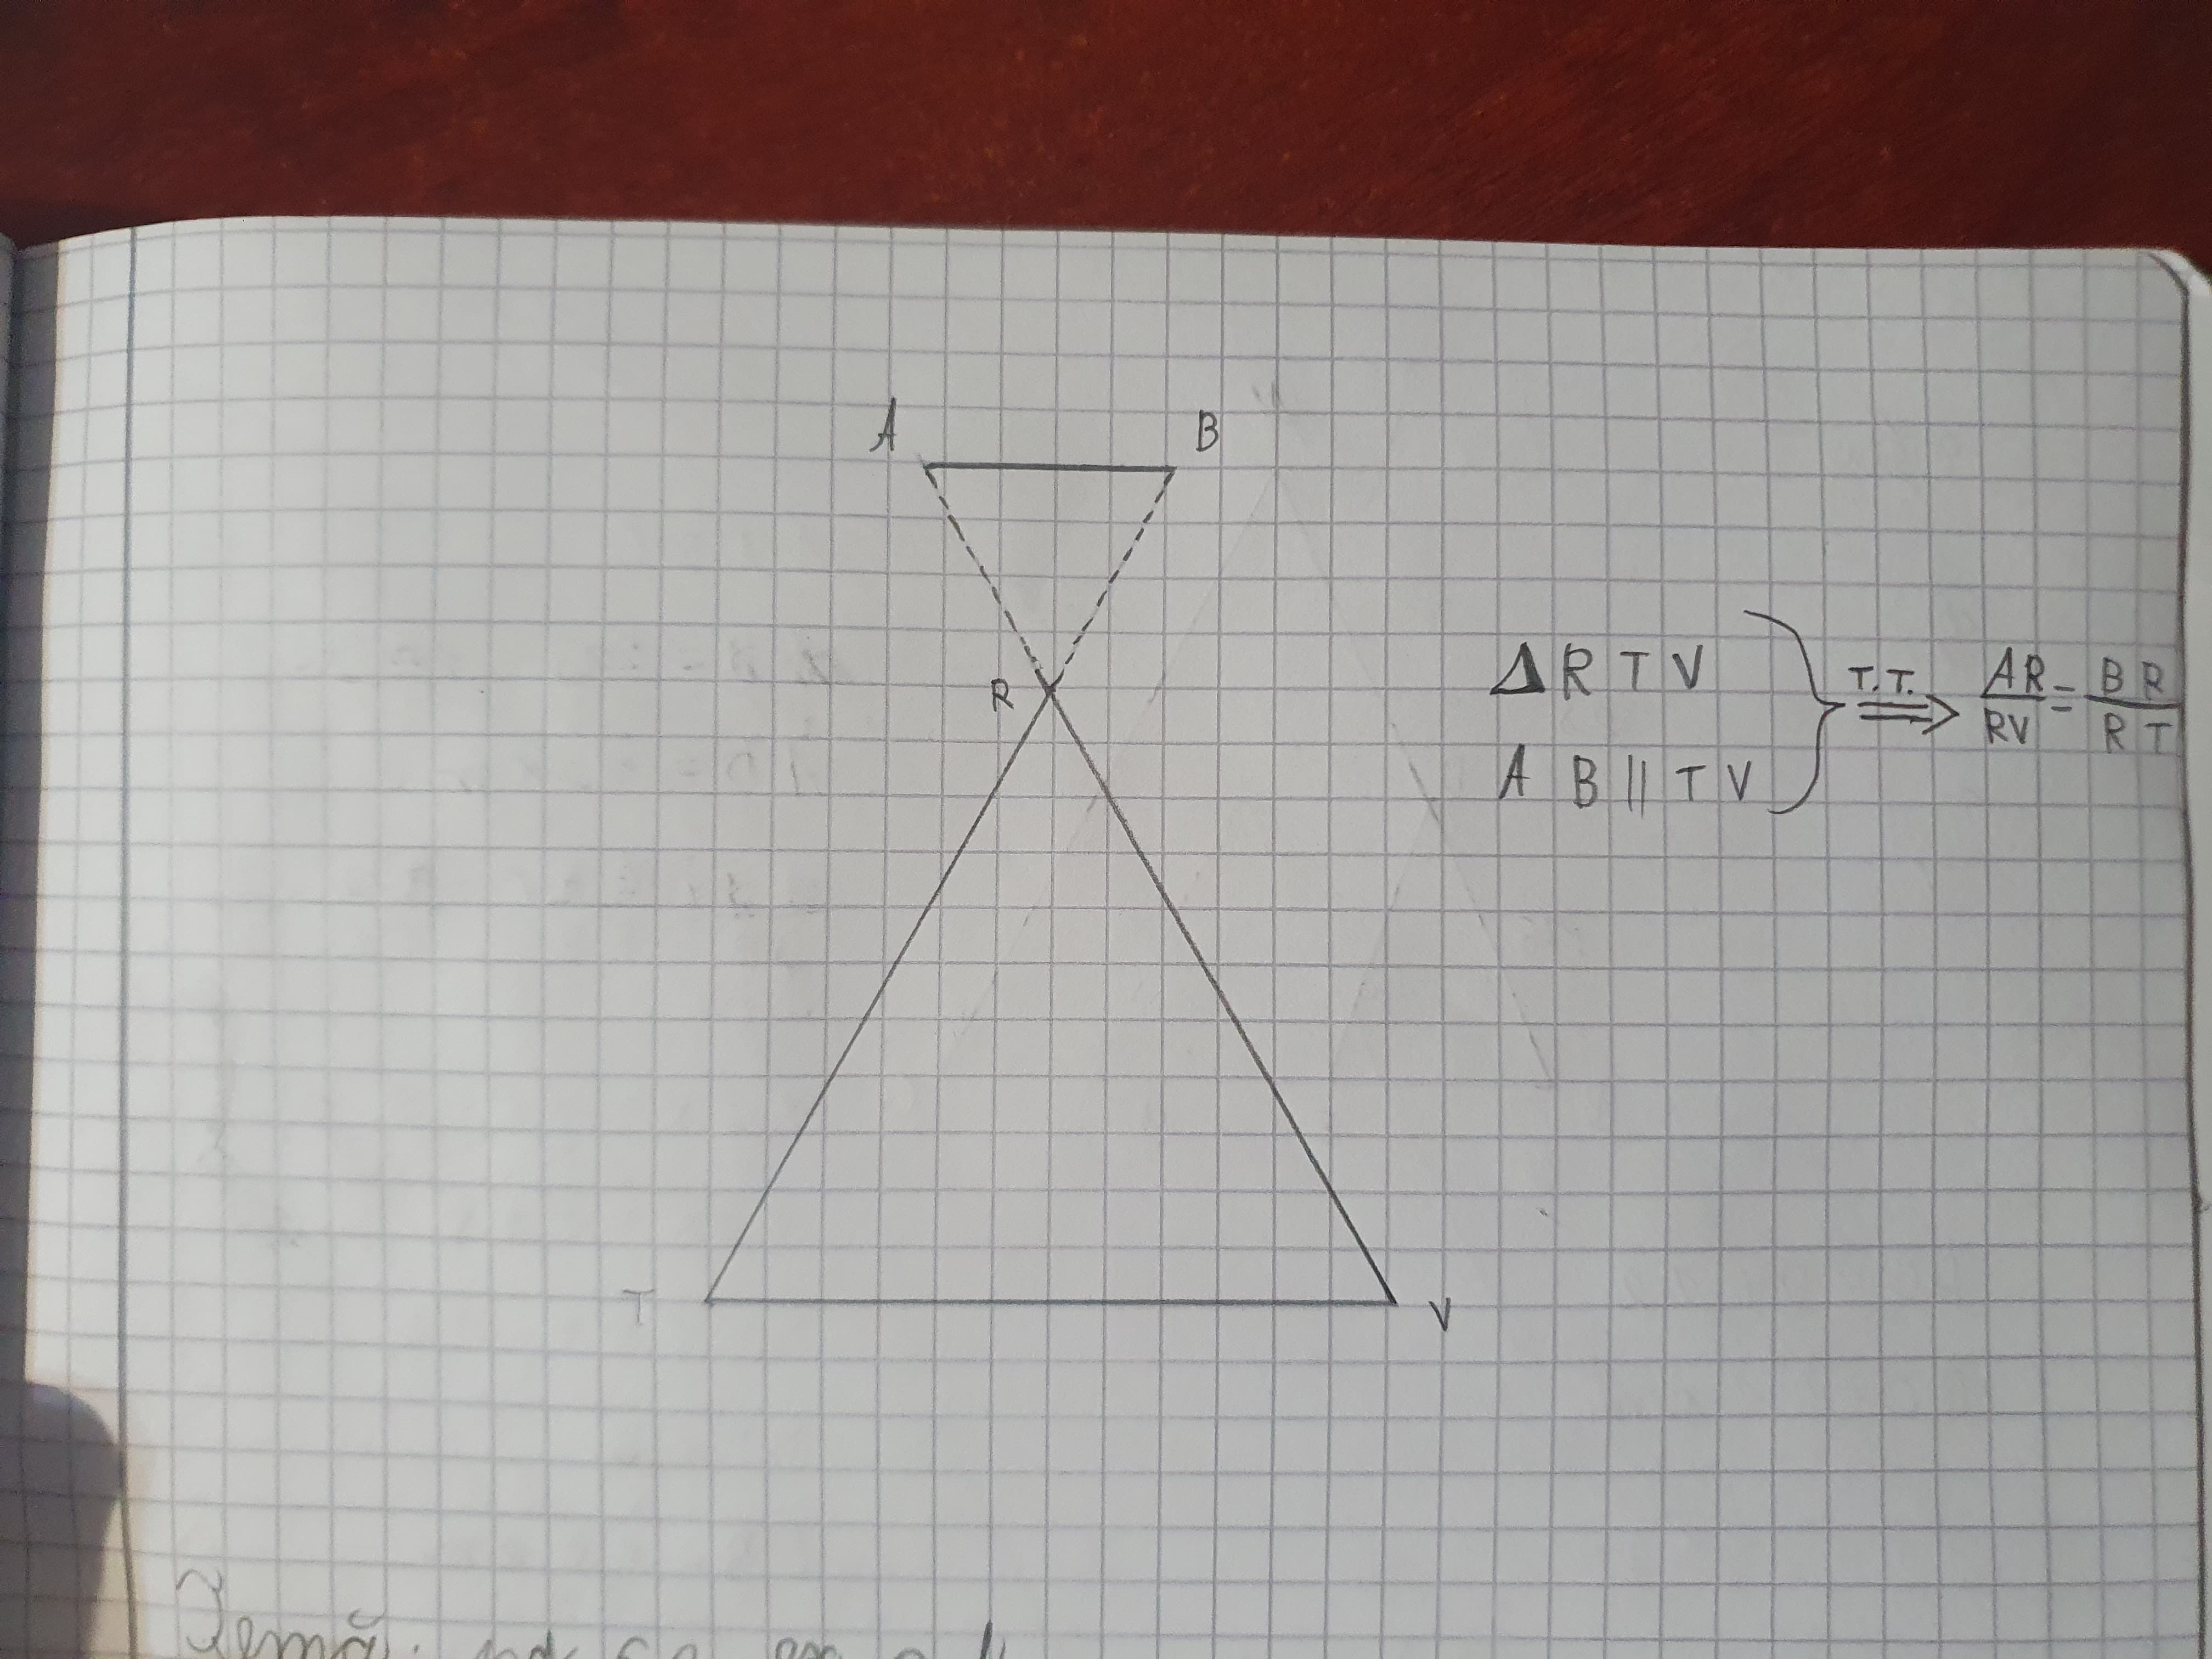 A B
R
Δ R T V
A B || T V
T.T. ⟹ AR/RV = BR/RT
T V
Temă: